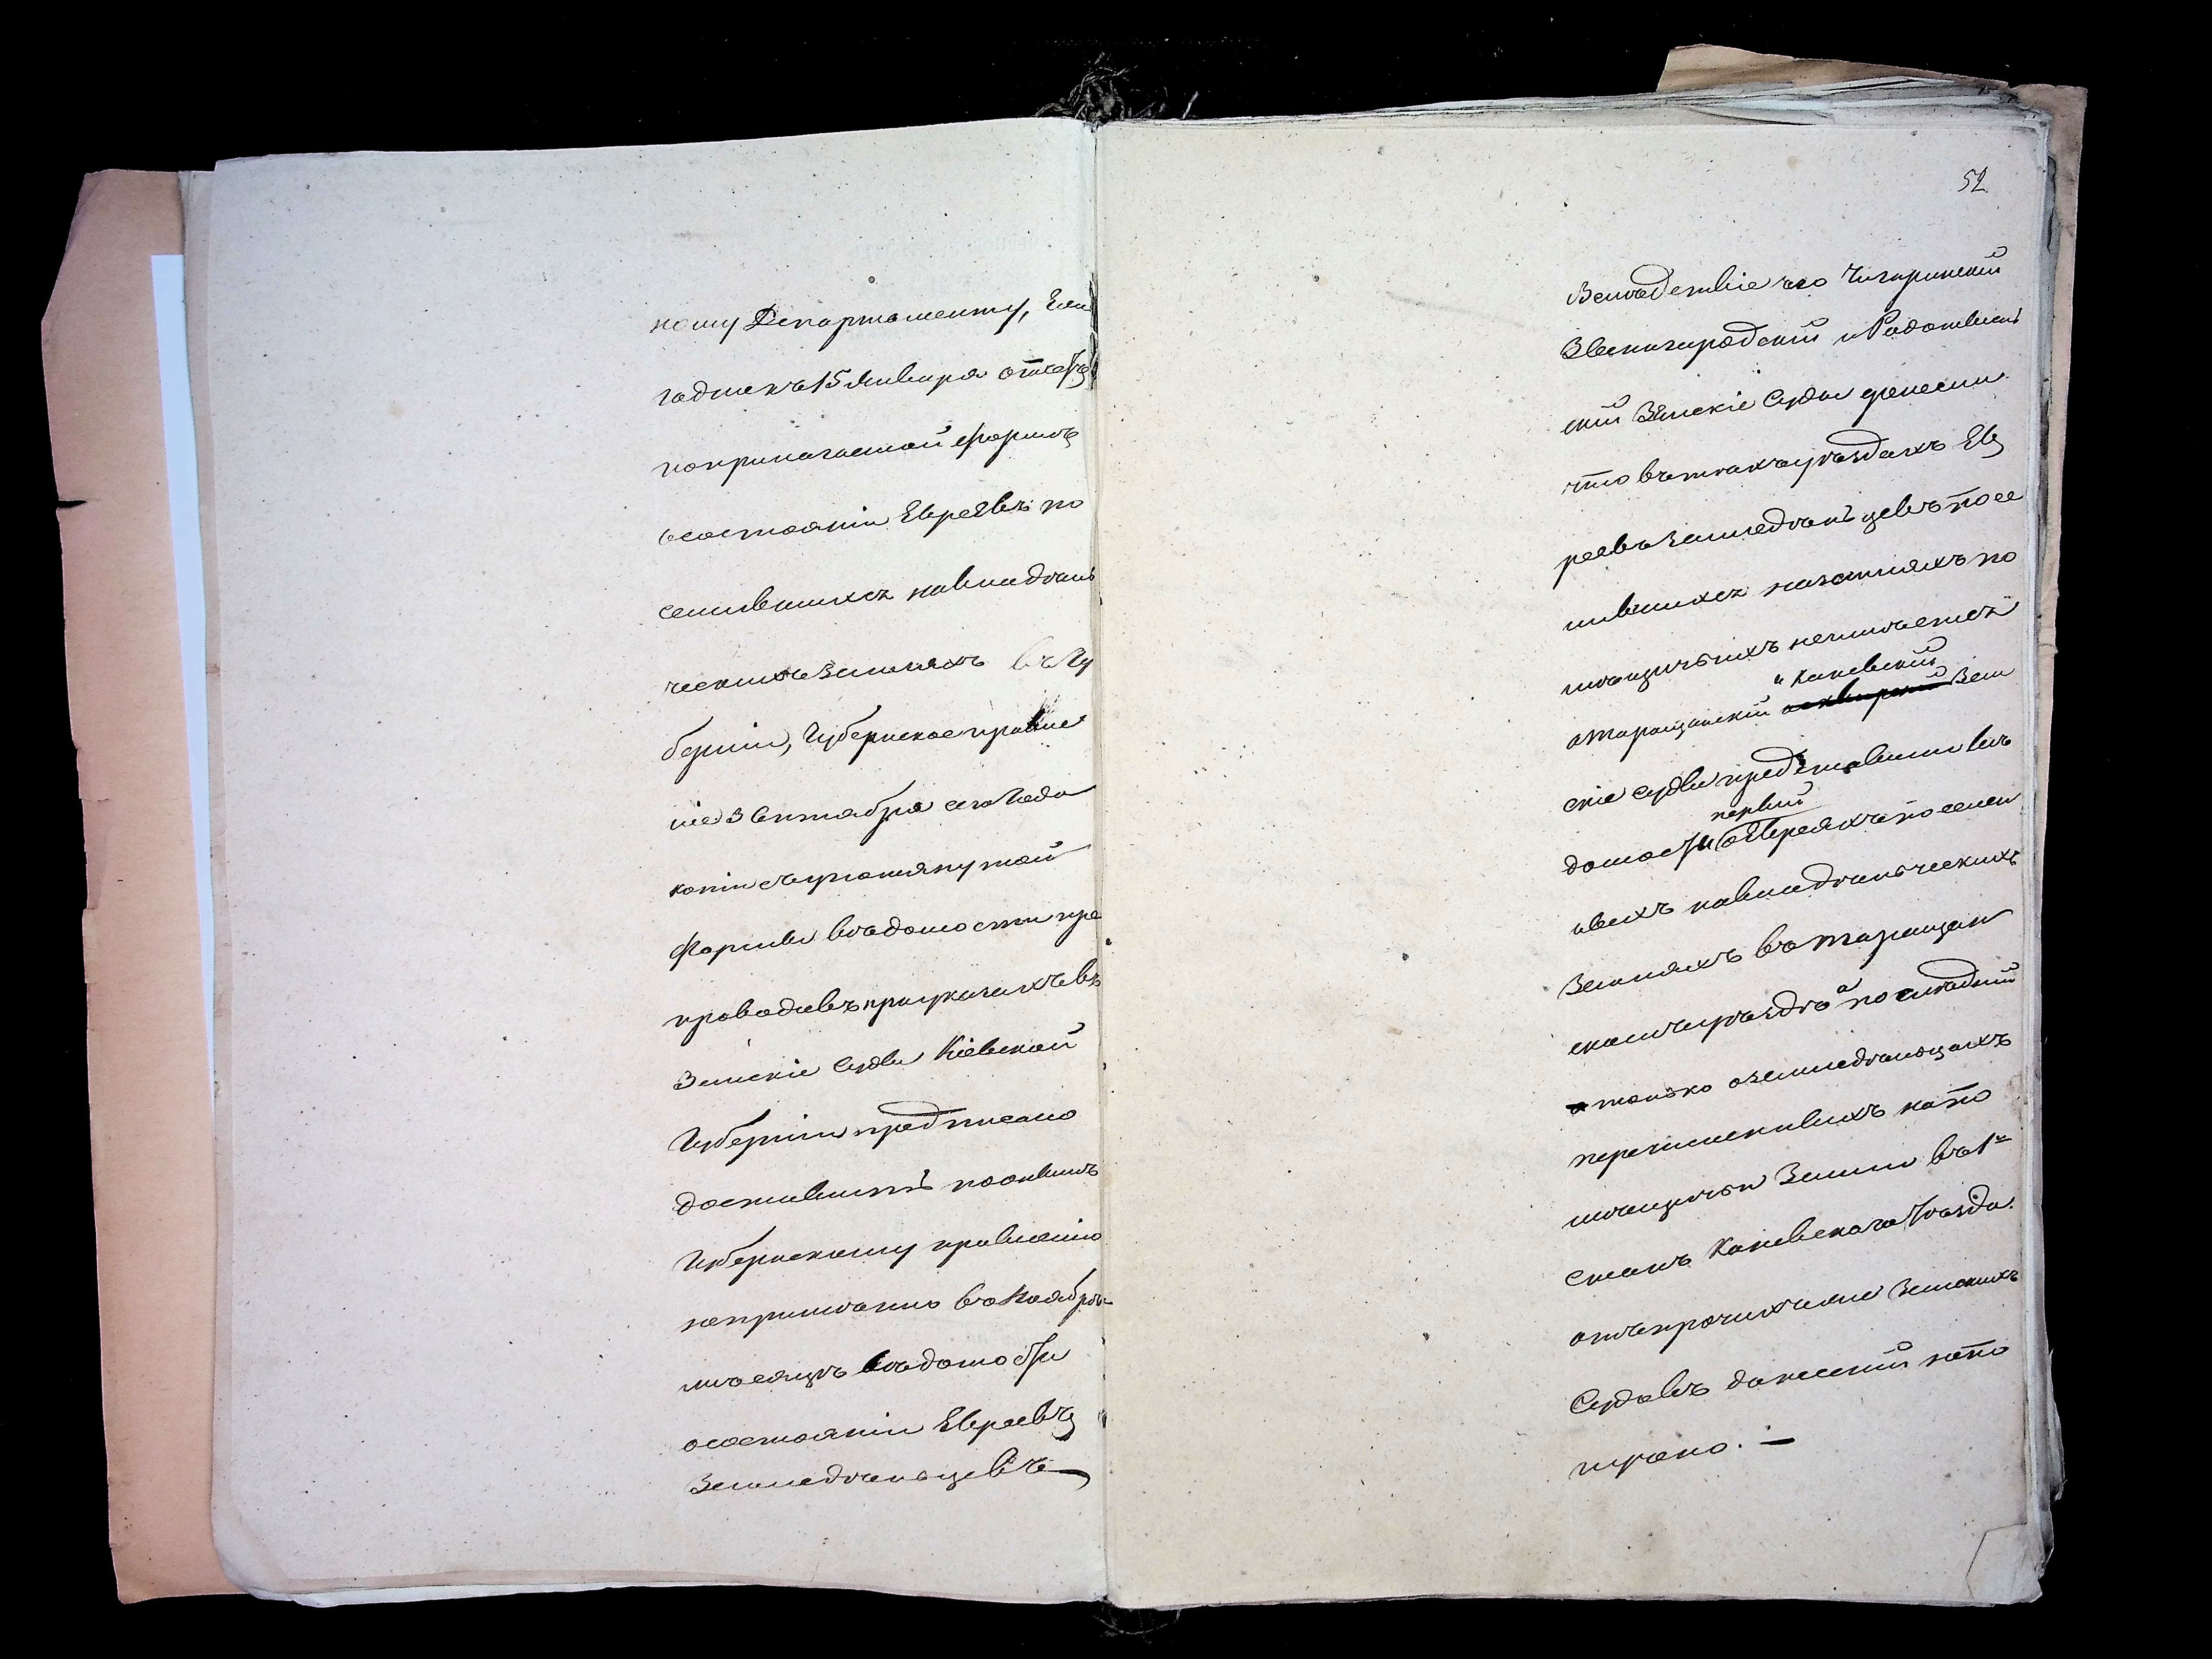 ному Департаменту, Еже
годно къ 15 Января отчетъ
по прилагаемой формѣ
о состояніи Евреевъ по
селившихся на владѣль
ческихъ земляхъ въ Гу
берніи, Губернское правле
ніе 3 Октября сего Года
копіи съ упомянутой
формы вѣдомости пре
проводивъ при указахъ въ
Земскіе Суды Кіевской
Губерніи предписано
доставить по онымъ
Губернскому правленію
непримѣнно въ Ноябрѣ
мѣсяцѣ вѣдомости
о состояніи Евреевъ
Земледѣльцевъ
52
Вслѣдствіе чего Чигиринскій
Звенигородскій и Радомысль
скій Земскіе Суды донесли
что въ тѣхъ уѣздахъ Ев
реевъ земледѣльцевъ посе
лившихся на земляхъ по
мѣщичьихъ неимѣется
и Каневскій
а Таращанскій Зем
скіе суды представили вѣ
первый
домости о Евреяхъ поселен
ныхъ на владѣльческихъ
Земляхъ въ Таращан
скомъ уѣздѣ а послѣдній
только о земледѣльцахъ
перечисленныхъ на по
мѣщичьи Земли въ 1м
станъ Каневскаго Уѣзда.
отъ прочихъ же Земскихъ
Судовъ донесеній не по
лучено. —